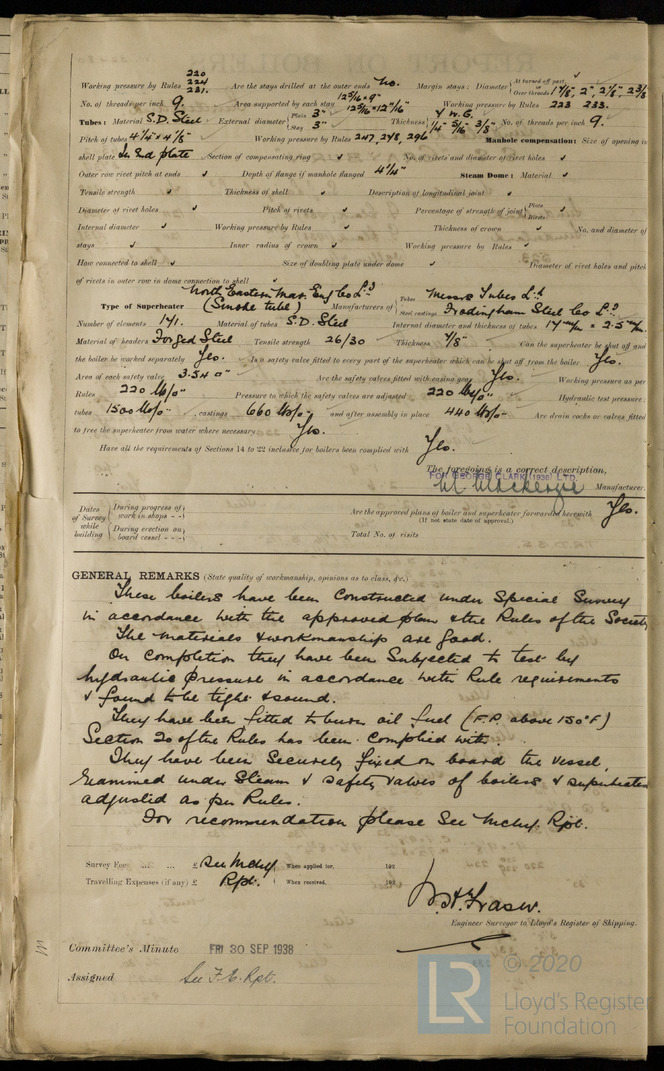 220
224
231.
Working pressure by Rules Are the stays drilled at the outer ends No. Margin stays: Diameter { At turned off part, or Over threads 1 7/8", 2", 2 1/8", 2 3/8
No. of threads per inch 9. Area supported by each stay 12 5/16 × 9" 12 5/16 × 12 11/16" Working pressure by Rules 223 233.
Tubes: Material S.D. Steel External diameter { Plain 3" Stay 3" Thickness { 7 W.G. 1/4" 5/16" 3/8" No. of threads per inch 9.
Pitch of tubes 4 1/4" × 4 1/8" Working pressure by Rules 247, 248, 296 Manhole compensation: Size of opening in
shell plate In End plate Section of compensating ring No. of rivets and diameter of rivet holes
Outer row rivet pitch at ends Depth of flange if manhole flanged 4 1/2" Steam Dome: Material
Tensile strength Thickness of shell Description of longitudinal joint
Diameter of rivet holes Pitch of rivets Percentage of strength of joint { Plate Rivets
Internal diameter Working pressure by Rules Thickness of crown No. and diameter of
stays Inner radius of crown Working pressure by Rules
How connected to shell Size of doubling plate under dome Diameter of rivet holes and pitch
of rivets in outer row in dome connection to shell
Type of Superheater North Eastern Mar. Eng Co Ld (Smoke tube) Manufacturers of { Tubes Messrs Tubes Ld Steel castings Frodingham Steel Co Ld
Number of elements 141. Material of tubes S.D. Steel Internal diameter and thickness of tubes 17 m/m × 2.5 m/m.
Material of headers Forged Steel Tensile strength 26/30 Thickness 7/8" Can the superheater be shut off and
the boiler be worked separately Yes. Is a safety valve fitted to every part of the superheater which can be shut off from the boiler Yes.
Area of each safety valve 3.54 □" Are the safety valves fitted with easing gear Yes. Working pressure as per
Rules 220 lbs/□" Pressure to which the safety valves are adjusted 220 lbs/□" Hydraulic test pressure:
tubes 1500 lbs/□", castings 660 lbs/□" and after assembly in place 440 lbs/□" Are drain cocks or valves fitted
to free the superheater from water where necessary Yes.
Have all the requirements of Sections 14 to 22 inclusive for boilers been complied with Yes.
The foregoing is a correct description,
FOR GEORGE CLARK (1938) LTD.
M. Mackenzie Manufacturer.
Dates of Survey while building { During progress of work in shops - - During erection on board vessel - - -
Are the approved plans of boiler and superheater forwarded herewith Yes.
(If not state date of approval.)
Total No. of visits
GENERAL REMARKS (State quality of workmanship, opinions as to class, &c.)
These boilers have been Constructed under Special Survey
in accordance with the approved plan & the Rules of the Society
The materials & workmanship are good.
On completion they have been Subjected to test by
hydraulic pressure in accordance with Rule requirements
& found to be tight & sound.
They have been fitted to burn oil fuel (F.P. above 150°F)
Section 20 of the Rules has been complied with.
They have been Securely fixed on board the vessel,
Examined under Steam & safety valves of boilers & superheater
adjusted as per Rules.
For recommendation please See Mchy. Rpt.
Survey Fee ... ... £ See Mchy When applied for, 192
Travelling Expenses (if any) £ Rpt. When received, 192
W.H. Fraser.
Engineer Surveyor to Lloyd's Register of Shipping.
Committee's Minute FRI 30 SEP 1938
Assigned See F.E. Rpt.
LR © 2020
Lloyd's Register
Foundation